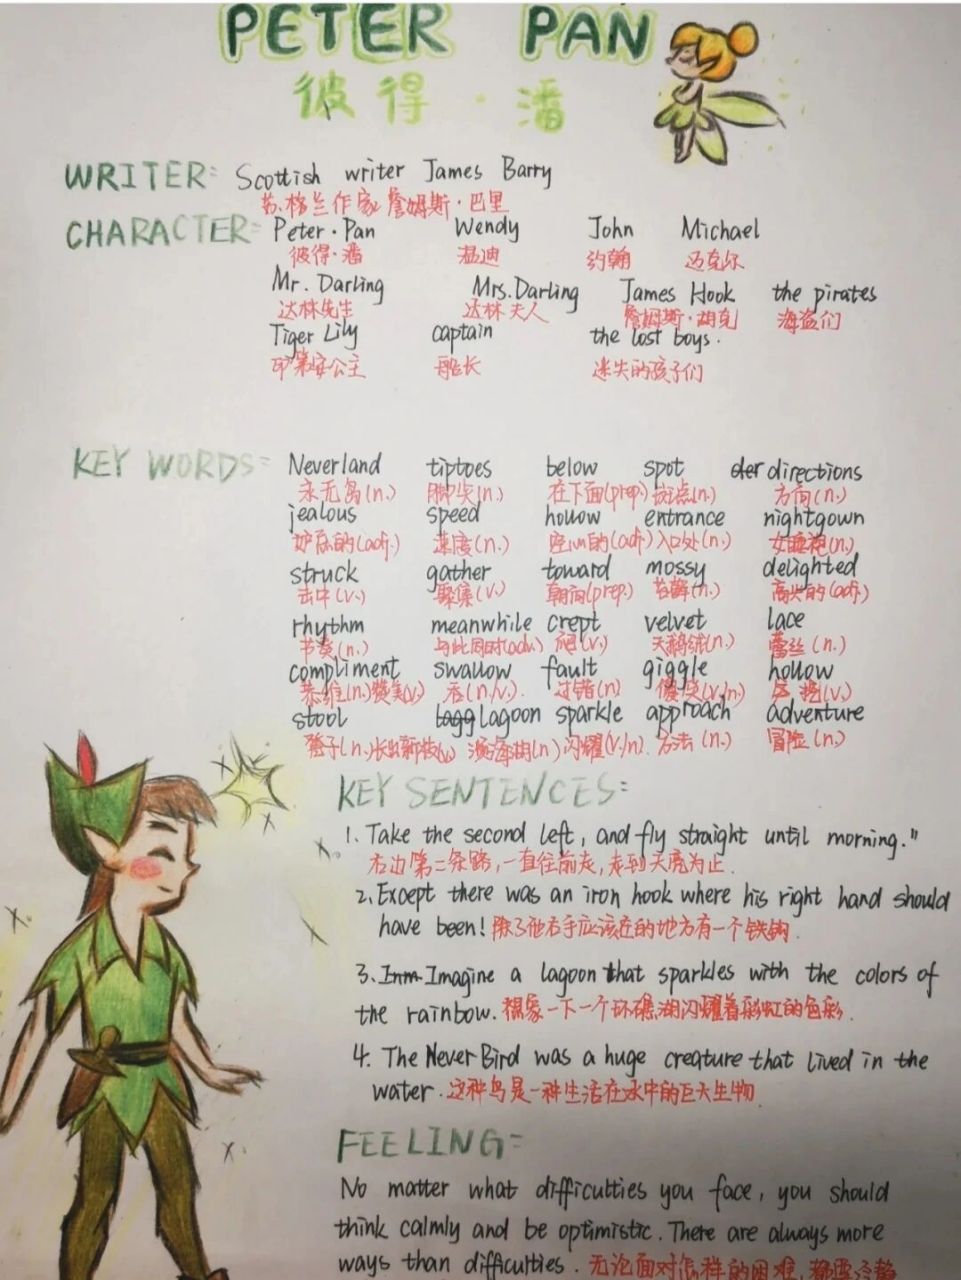 PETER PAN
彼得·潘
WRITER: Scottish writer James Barry
苏格兰作家詹姆斯·巴里
CHARACTER: Peter·Pan Wendy John Michael
彼得·潘 温迪 约翰 迈克尔
Mr. Darling Mrs. Darling James Hook the pirates
达林先生 达林夫人 詹姆斯·胡克 海盗们
Tiger Lily captain the lost boys.
印第安公主 船长 迷失的孩子们
KEY WORDS: Neverland tiptoes below spot directions
永无岛(n.) 脚尖(n.) 在下面(prep.) 斑点(n.) 方向(n.)
jealous speed hollow entrance nightgown
妒忌的(adj.) 速度(n.) 空心的(adj.) 入口处(n.) 女睡袍(n.)
struck gather toward mossy delighted
击中(v.) 聚集(v.) 朝向(prep.) 苔藓(n.) 高兴的(adj.)
rhythm meanwhile crept velvet lace
节奏(n.) 与此同时(adv.) 爬(v.) 天鹅绒(n.) 蕾丝(n.)
compliment swallow fault giggle hollow
恭维(n.)赞美(v.) 吞(n./v.) 过错(n) 傻笑(v./n)
stool lagoon sparkle approach adventure
凳子(n.)长出新枝(v.) 滨海湖(n) 闪耀(v./n). 方法(n.) 冒险(n.)
KEY SENTENCES:
1. Take the second left, and fly straight until morning."
右边第二条路,一直往前走,走到天亮为止.
2. Except there was an iron hook where his right hand should
have been! 除了他右手应该在的地方有一个铁钩.
3. Imagine a lagoon that sparkles with the colors of
the rainbow. 想象一下一个环礁湖闪耀着彩虹的色彩.
4. The Never Bird was a huge creature that lived in the
water. 这种鸟是一种生活在水中的巨大生物
FEELING:
No matter what difficulties you face, you should
think calmly and be optimistic. There are always more
ways than difficulties. 无论面对怎样的困难,